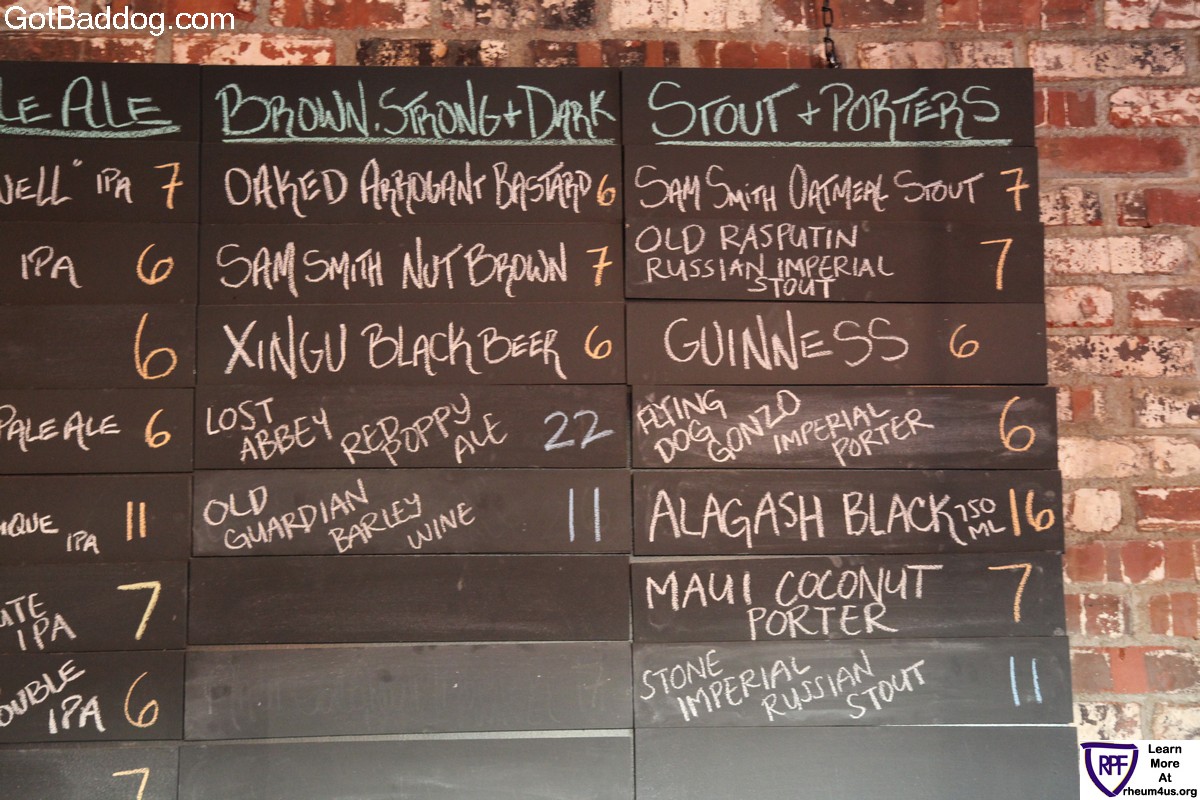 GotBaddog.com
LE ALE
IPA 7
IPA 6
6
PALE ALE 6
IPA 11
IPA 7
IPA 6
7
BROWN. STRONG + DARK
OAKED ARROGANT BASTARD 6
SAM SMITH NUT BROWN 7
XINGU BLACK BEER 6
LOST ABBEY RED POPPY ALE 22
OLD GUARDIAN BARLEY WINE 11
STOUT + PORTERS
SAM SMITH OATMEAL STOUT 7
OLD RASPUTIN
RUSSIAN IMPERIAL 7
STOUT
GUINNESS 6
FLYING DOG GONZO IMPERIAL PORTER 6
ALAGASH BLACK 750 ML 16
MAUI COCONUT 7
PORTER
STONE IMPERIAL RUSSIAN STOUT 11
RPF
Learn
More
At
rheum4us.org